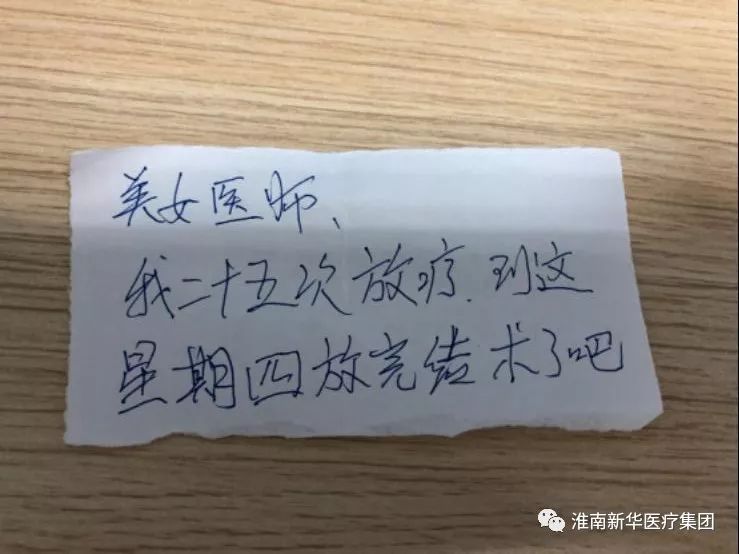 美女医师、
我二十五次放疗.到这
星期四放完结术了吧
淮南新华医疗集团